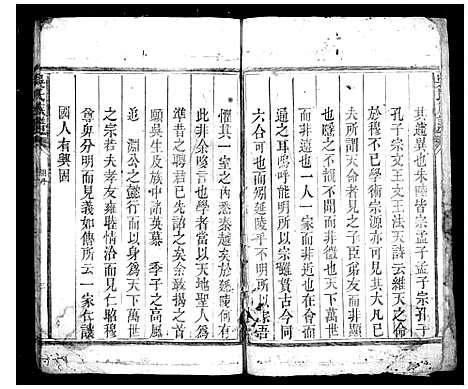 其趨異也朱陸皆宗孟子孟子宗孔子
孔子宗文王文王法天詩云維天之命
於穆不已學術宗源亦可見其大凡已
夫所謂天命者見之子臣弟友而非顯
也寄之不覩不聞而非隱也合四會而
而非遠也一人一家而非近也在會而
通之耳嗚呼能明所以宗雖賢古今同
六合可也如別延陵乎不明所以宗語
惟其一室之內悉秦越矣於延陵何有
此非余嗡言也學者當以天地聖人為
準昔之聘君已先道之矣余敢揚之以
願吳生及族中諸英慕季子之高風
追淵公之懿行而以身為天下萬世
之宗若夫孝友雍睦情洽而見仁昭穆
尊卑分明而見義如傳所云一家仁讓
國人有興因